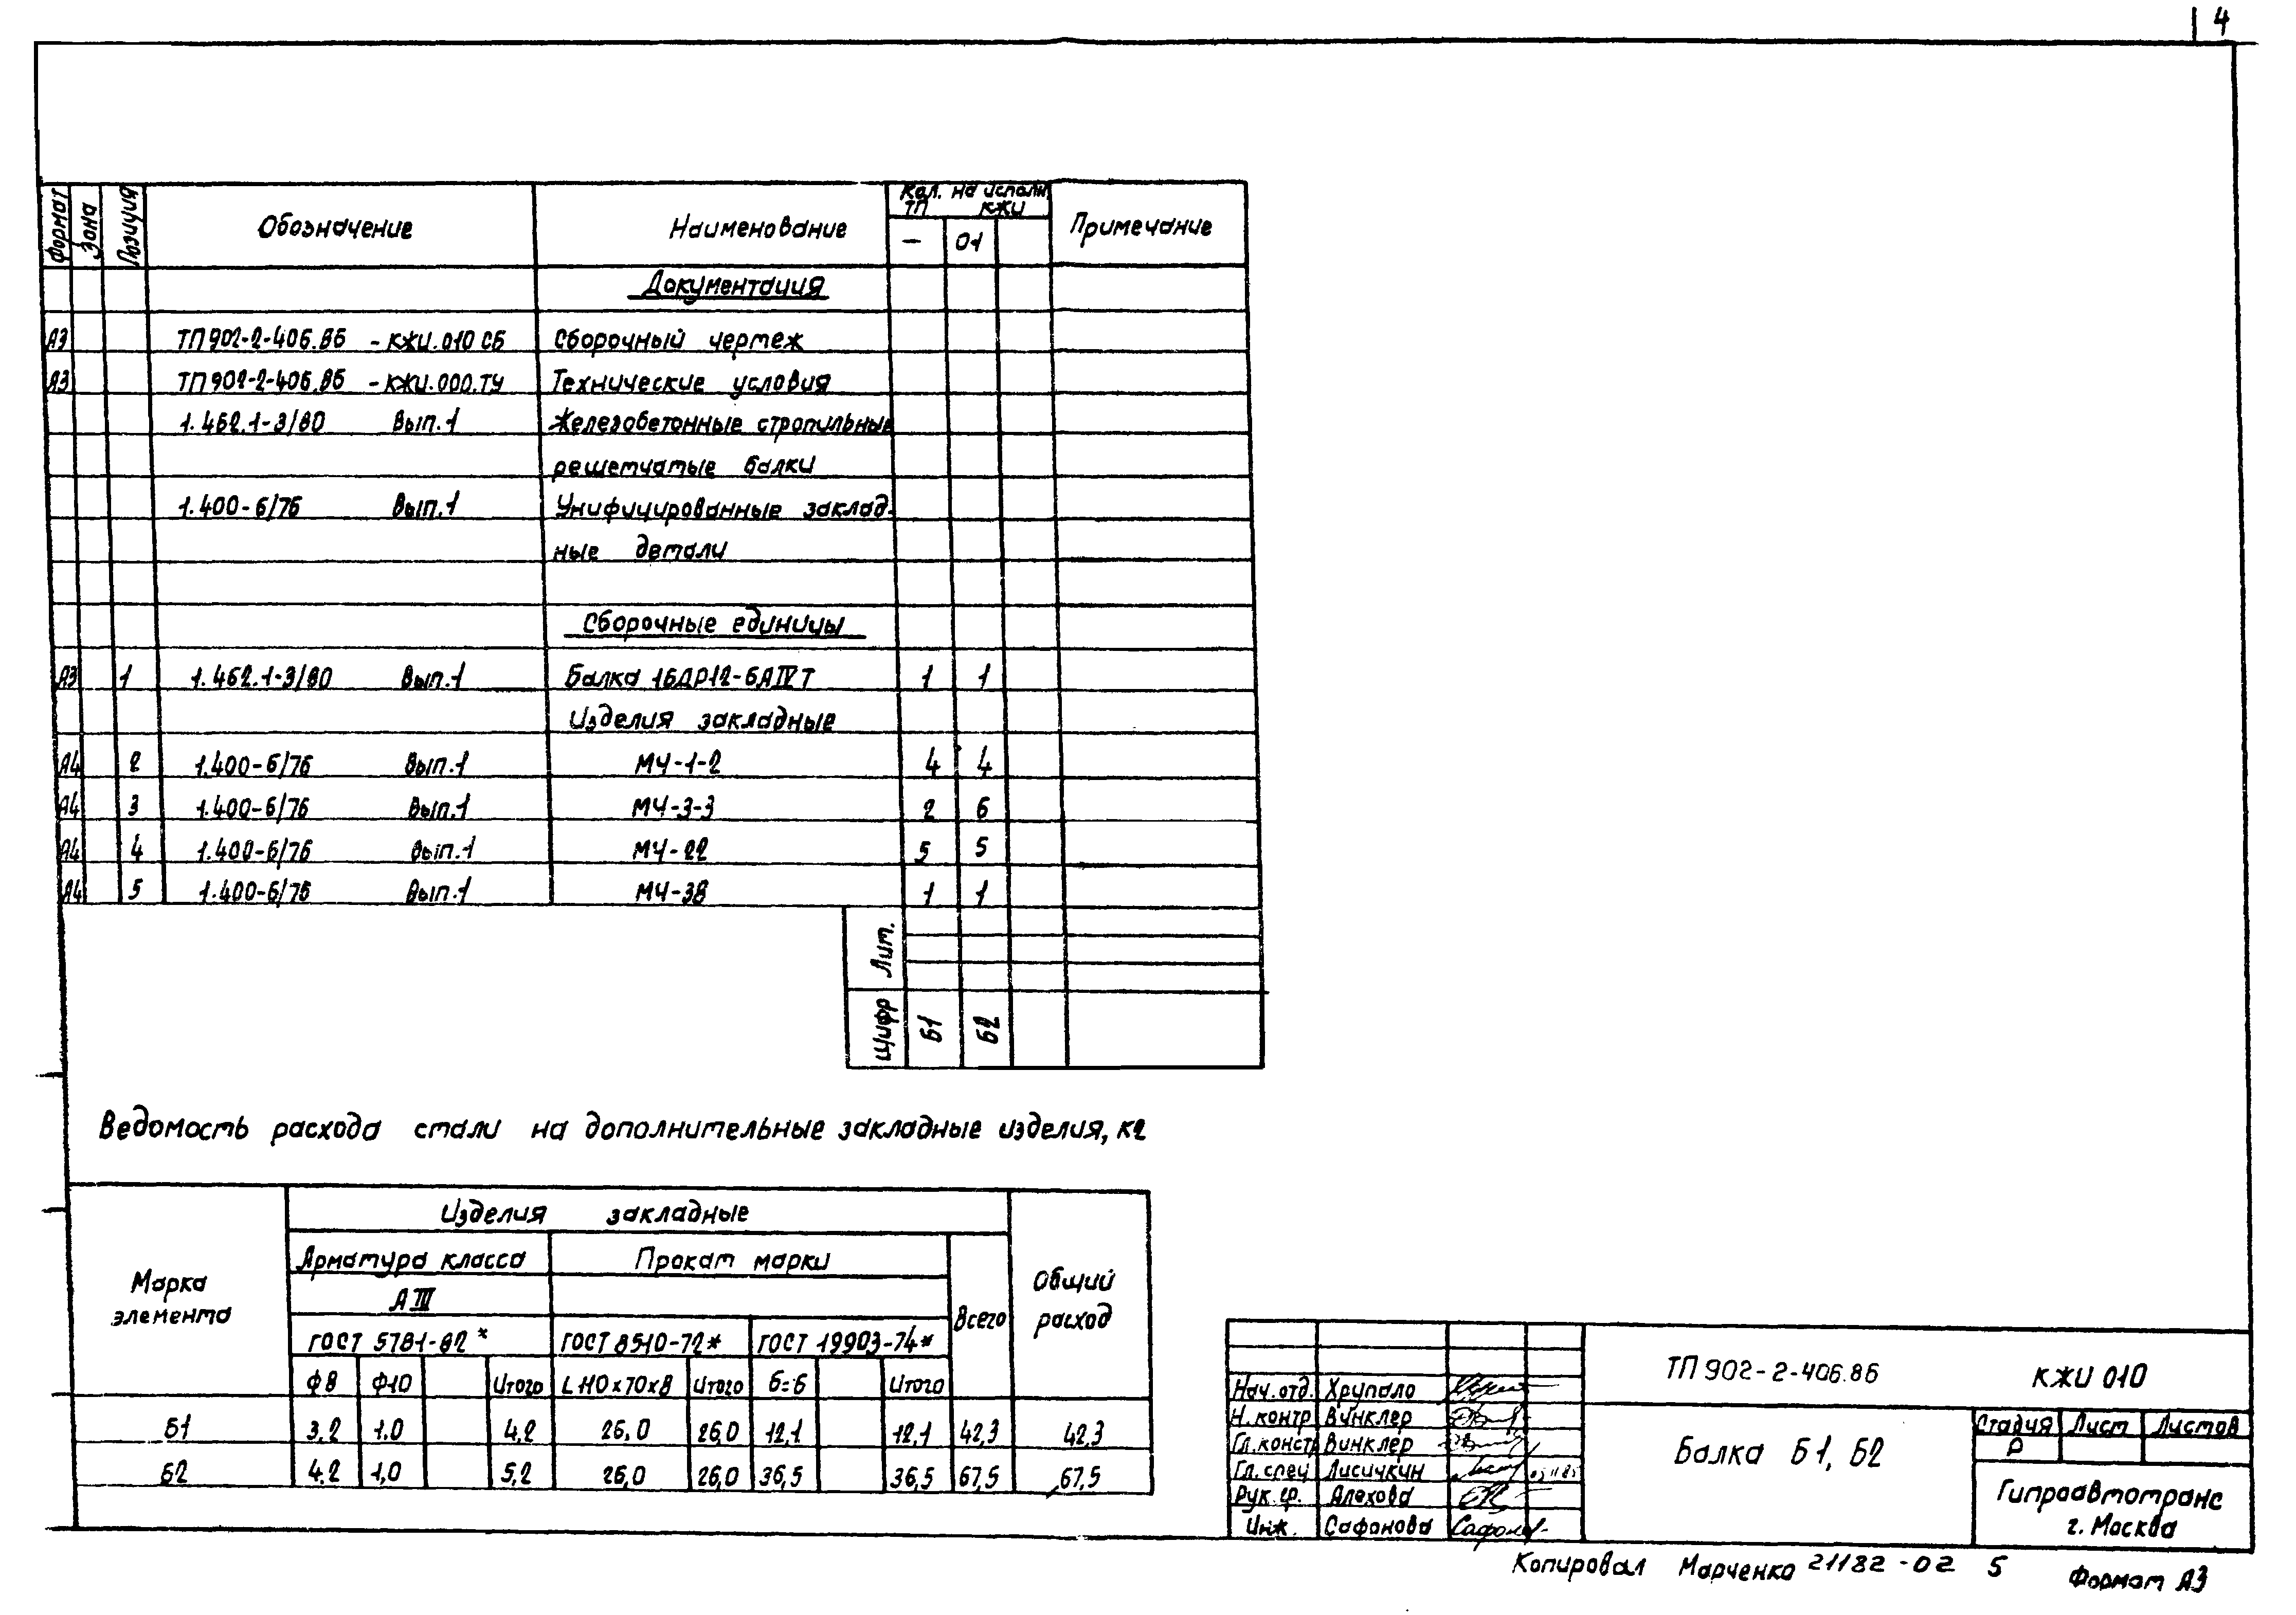 4
Формат Зона Позиция Обозначение Наименование Кол. на исполн. ТП КЖИ Примечание
— 01
Документация
А3 ТП 902-2-406.86 -КЖИ.010 СБ Сборочный чертеж
А3 ТП 902-2-406.86 -КЖИ.000.ТУ Технические условия
1.462.1-3/80 Вып.1 Железобетонные стропильные
решетчатые балки
1.400-6/76 Вып.1 Унифицированные заклад-
ные детали
Сборочные единицы
А3 1 1.462.1-3/80 Вып.1 Балка 1БДР12-6АIVТ 1 1
Изделия закладные
А4 2 1.400-6/76 Вып.1 МЧ-1-2 4 4
А4 3 1.400-6/76 Вып.1 МЧ-3-3 2 6
А4 4 1.400-6/76 Вып.1 МЧ-22 5 5
А4 5 1.400-6/76 Вып.1 МЧ-38 1 1
Лит.
Шифр Б1 Б2
Ведомость расхода стали на дополнительные закладные изделия, кг
Марка элемента Изделия закладные Общий расход
Арматура класса Прокат марки Всего
А III
ГОСТ 5781-82* ГОСТ 8510-72* ГОСТ 19903-74*
Ф8 Ф10 Итого L110x70x8 Итого б=6 Итого
Б1 3,2 1.0 4,2 26,0 26,0 12,1 12,1 42,3 42,3
Б2 4,2 1,0 5,2 26,0 26,0 36,5 36,5 67,5 67,5
ТП 902-2-406.86 КЖИ 010
Нач.отд. Хрупало
Н.контр Винклер
Гл.констр Винклер
Гл.спец Лисичкин
Рук.гр. Алехова
Инж. Сафонова
Балка Б1, Б2
Стадия Лист Листов
Р
Гипроавтотранс
г. Москва
Копировал Марченко 21182-02 5 Формат А3